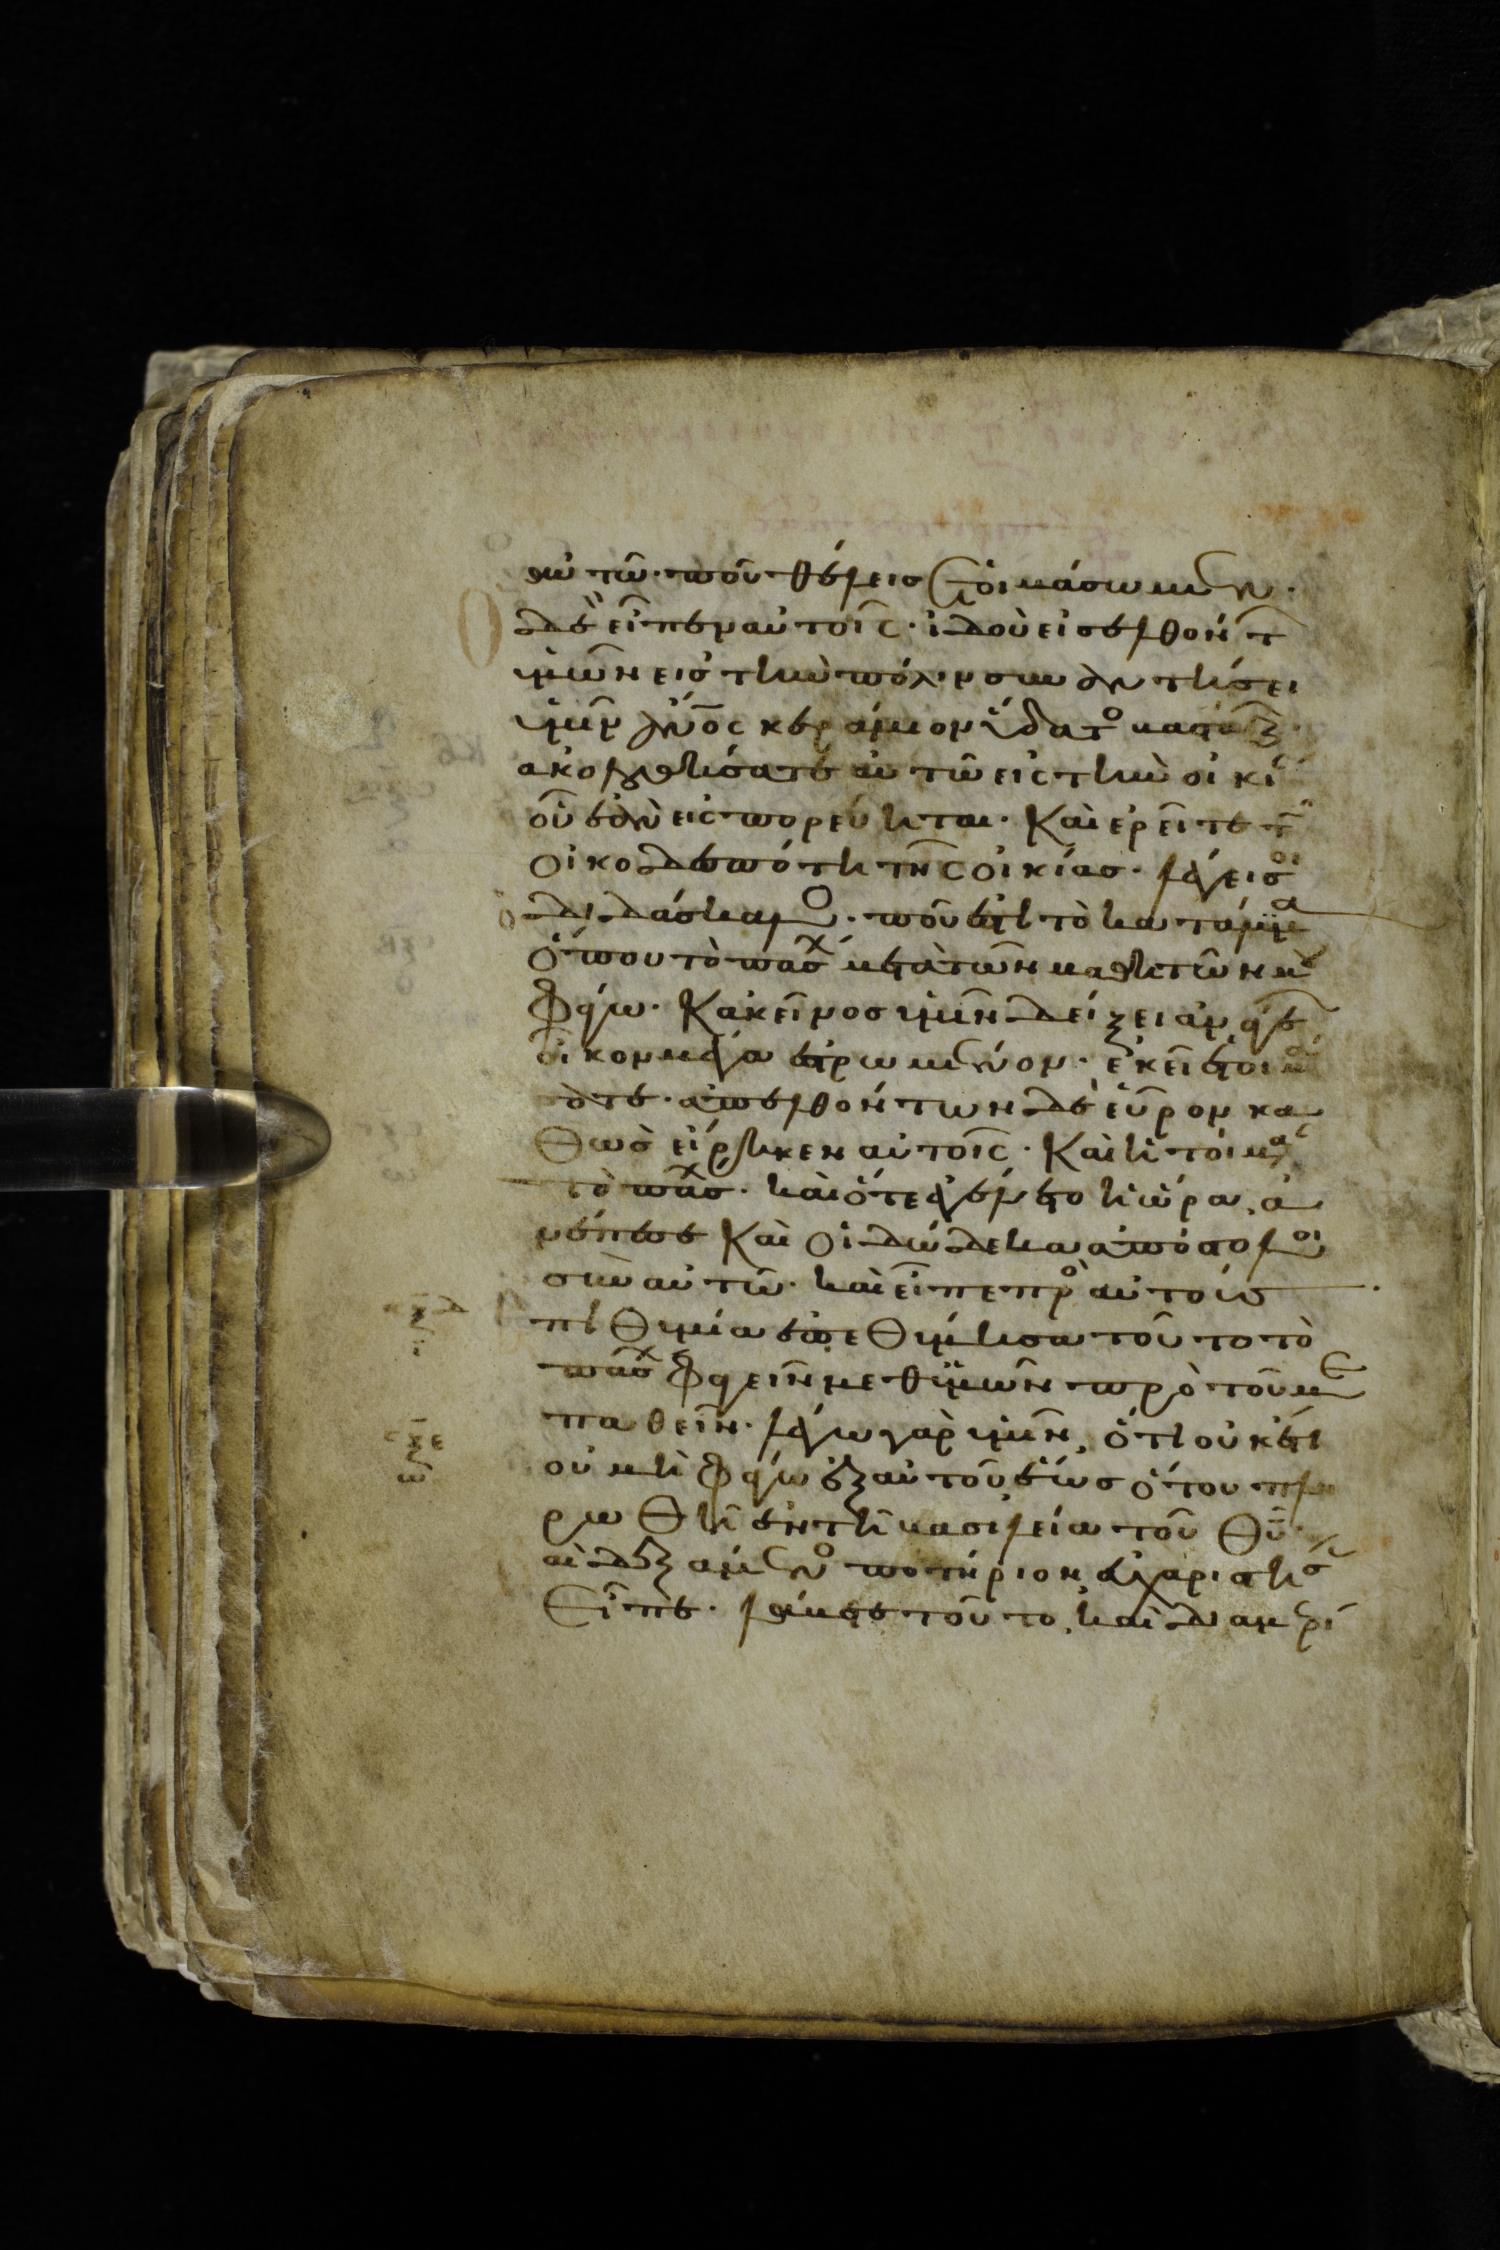 αὐτῶ· ποῦ θέλεις ἑτοιμάσωμεν·
Ὁ δὲ εἶπεν αὐτοῖς· ἰδοὺ εἰσελθόντ
ὑμῶν εἰς τὴν πόλιν συναντήσει
ὑμῖν ἄνος κεράμιον ὕδατο βαστάζ
ἀκολουθήσατε αὐτῶ εἰς τὴν οἰκί
οὗ ἐὰν εἰσπορεύηται· Καὶ ἐρεῖτε τ
οἰκοδεσπότη τῆς οἰκίας· λέγει σοι
ὁ διδάσκαλο· ποῦ ἐστὶ τὸ κατάλυμα
ὅπου τὸ πάσχ μετὰ τῶν μαθητῶν μ
φάγω· Κἀκεῖνος ὑμῖν δείξει ἀνώγε
οἶκον μέγα ἐστρωμένον· ἐκεῖ ἑτοιμά
σατε· ἀπελθόντων δὲ εὗρον κα
θὼς εἴρηκεν αὐτοῖς· Καὶ ἡτοίμασ
τὸ πάσχ· καὶ ὅτε ἐγένετο ἡ ὥρα, ἀ
νέπεσε καὶ οἱ δώδεκα ἀπόστολοι
σὺν αὐτῶ· καὶ εἶπε πρὸ αὐτούς·
πιθυμία ἐπεθύμησα τοῦτο τὸ
πάσχ φαγεῖν μεθ ὑμῶν πρὸ τοῦ με
παθεῖν· λέγω γὰρ ὑμῖν, ὅτι οὐκέτι
οὐ μὴ φάγω ἐξ αὐτοῦ ἕως ὅτου πλη
ρωθῆ ἐν τῆ βασιλεία τοῦ θυ· κ
αὶ δεξάμενο ποτήριον εὐχαριστήσ
εἶπε· λάβετε τοῦτο, καὶ διαμερί